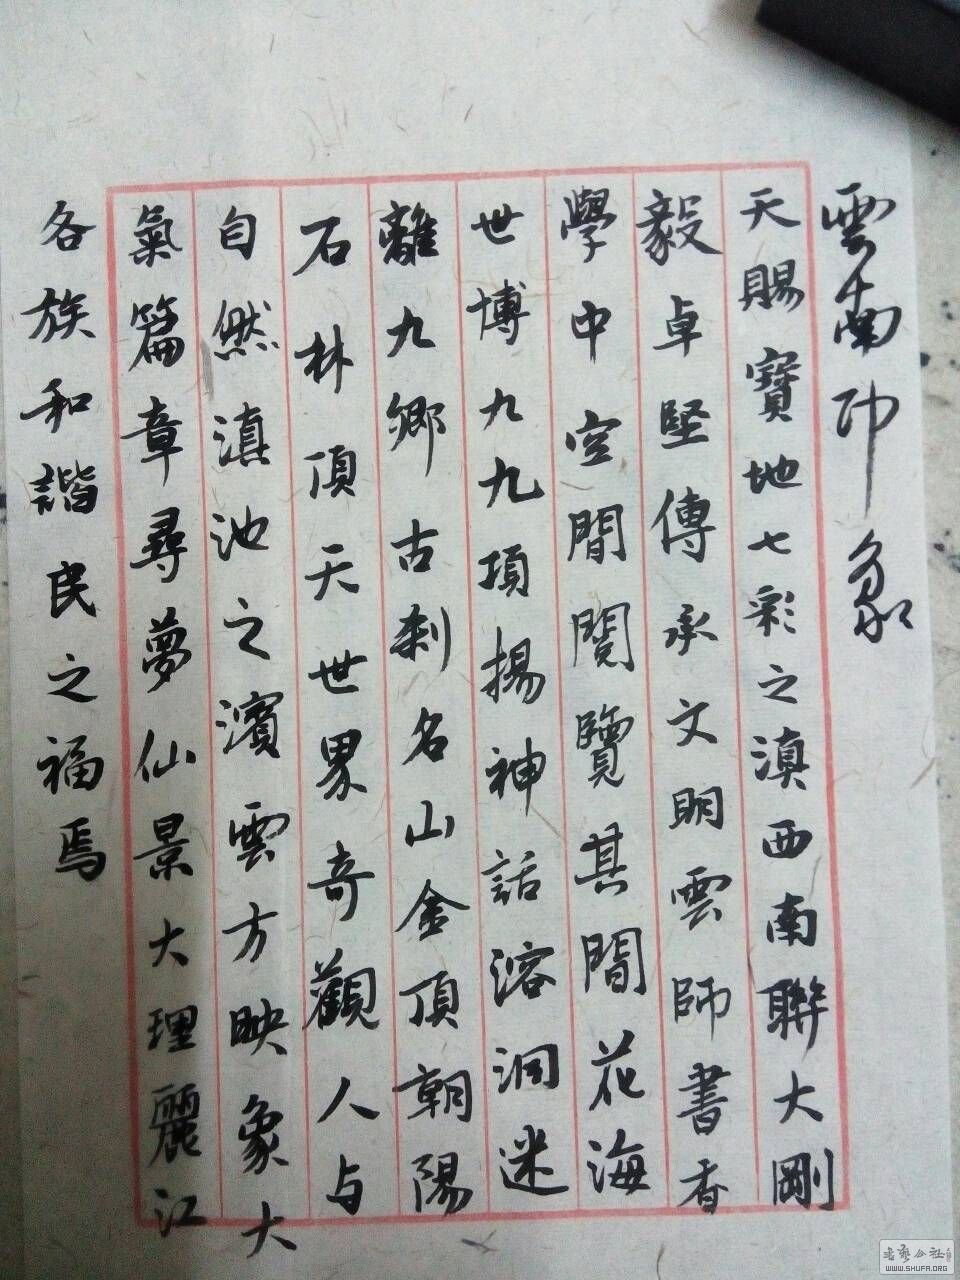 雲南印象
天賜寶地七彩之滇西南聯大剛
毅卓堅傳承文明雲師書香
學中空間閱覽其間花海
世博九九項揚神話溶洞迷
離九鄉古剎名山金頂朝陽
石林頂天世界奇觀人与
自然滇池之濱雲方映象大
氣篇章尋夢仙景大理麗江
各族和諧民之福焉
WWW.SHUFA.ORG